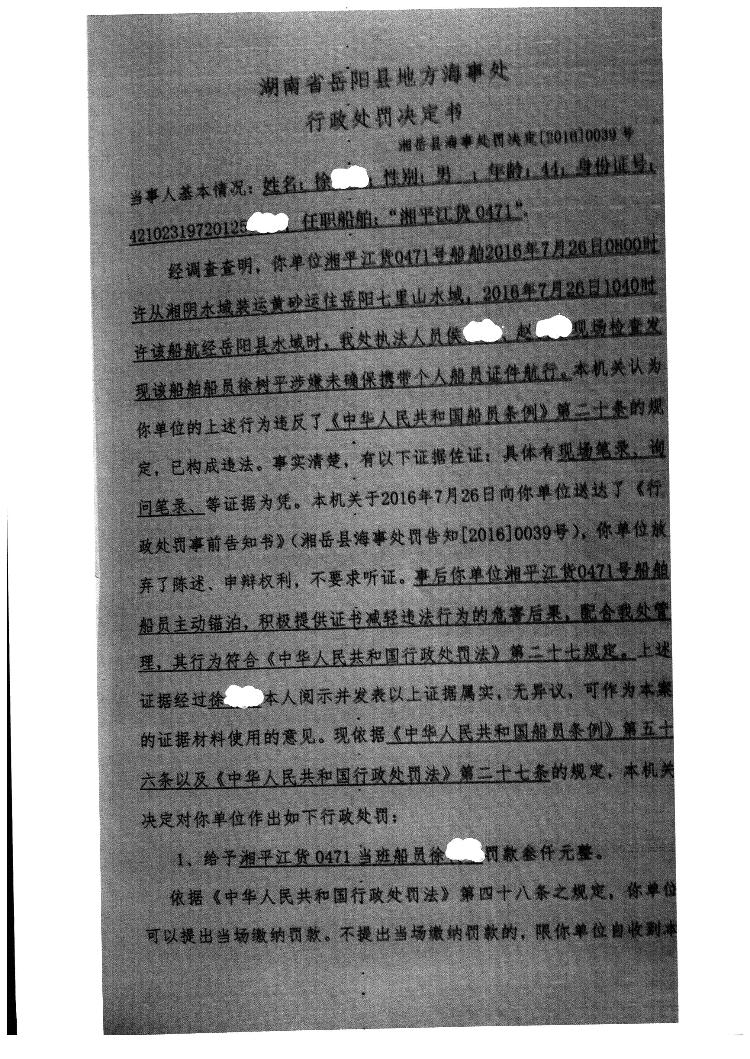 湖南省岳阳县地方海事处
行政处罚决定书
湘岳县海事处罚决定[2016]0039号
当事人基本情况：姓名：徐 ；性别：男 ；年龄：44；身份证号：
42102319720125 任职船舶：“湘平江货0471”.
经调查查明，你单位湘平江货0471号船舶2016年7月26日0800时
许从湘阴水域装运黄砂运往岳阳七里山水域，2016年7月26日1040时
许该船航经岳阳县水域时，我处执法人员侯 、赵 现场检查发
现该船舶船员徐树平涉嫌未确保携带个人船员证件航行。本机关认为
你单位的上述行为违反了《中华人民共和国船员条例》第二十条的规
定，已构成违法。事实清楚，有以下证据佐证：具体有现场笔录、询
问笔录、等证据为凭。本机关于2016年7月26日向你单位送达了《行
政处罚事前告知书》（湘岳县海事处罚告知[2016]0039号），你单位放
弃了陈述、申辩权利，不要求听证。事后你单位湘平江货0471号船舶
船员主动锚泊，积极提供证书减轻违法行为的危害后果，配合我处管
理，其行为符合《中华人民共和国行政处罚法》第二十七规定。上述
证据经过徐 本人阅示并发表以上证据属实，无异议，可作为本案
的证据材料使用的意见。现依据《中华人民共和国船员条例》第五十
六条以及《中华人民共和国行政处罚法》第二十七条的规定，本机关
决定对你单位作出如下行政处罚：
1、给予湘平江货0471当班船员徐 罚款叁仟元整。
依据《中华人民共和国行政处罚法》第四十八条之规定，你单位
可以提出当场缴纳罚款。不提出当场缴纳罚款的，限你单位自收到本